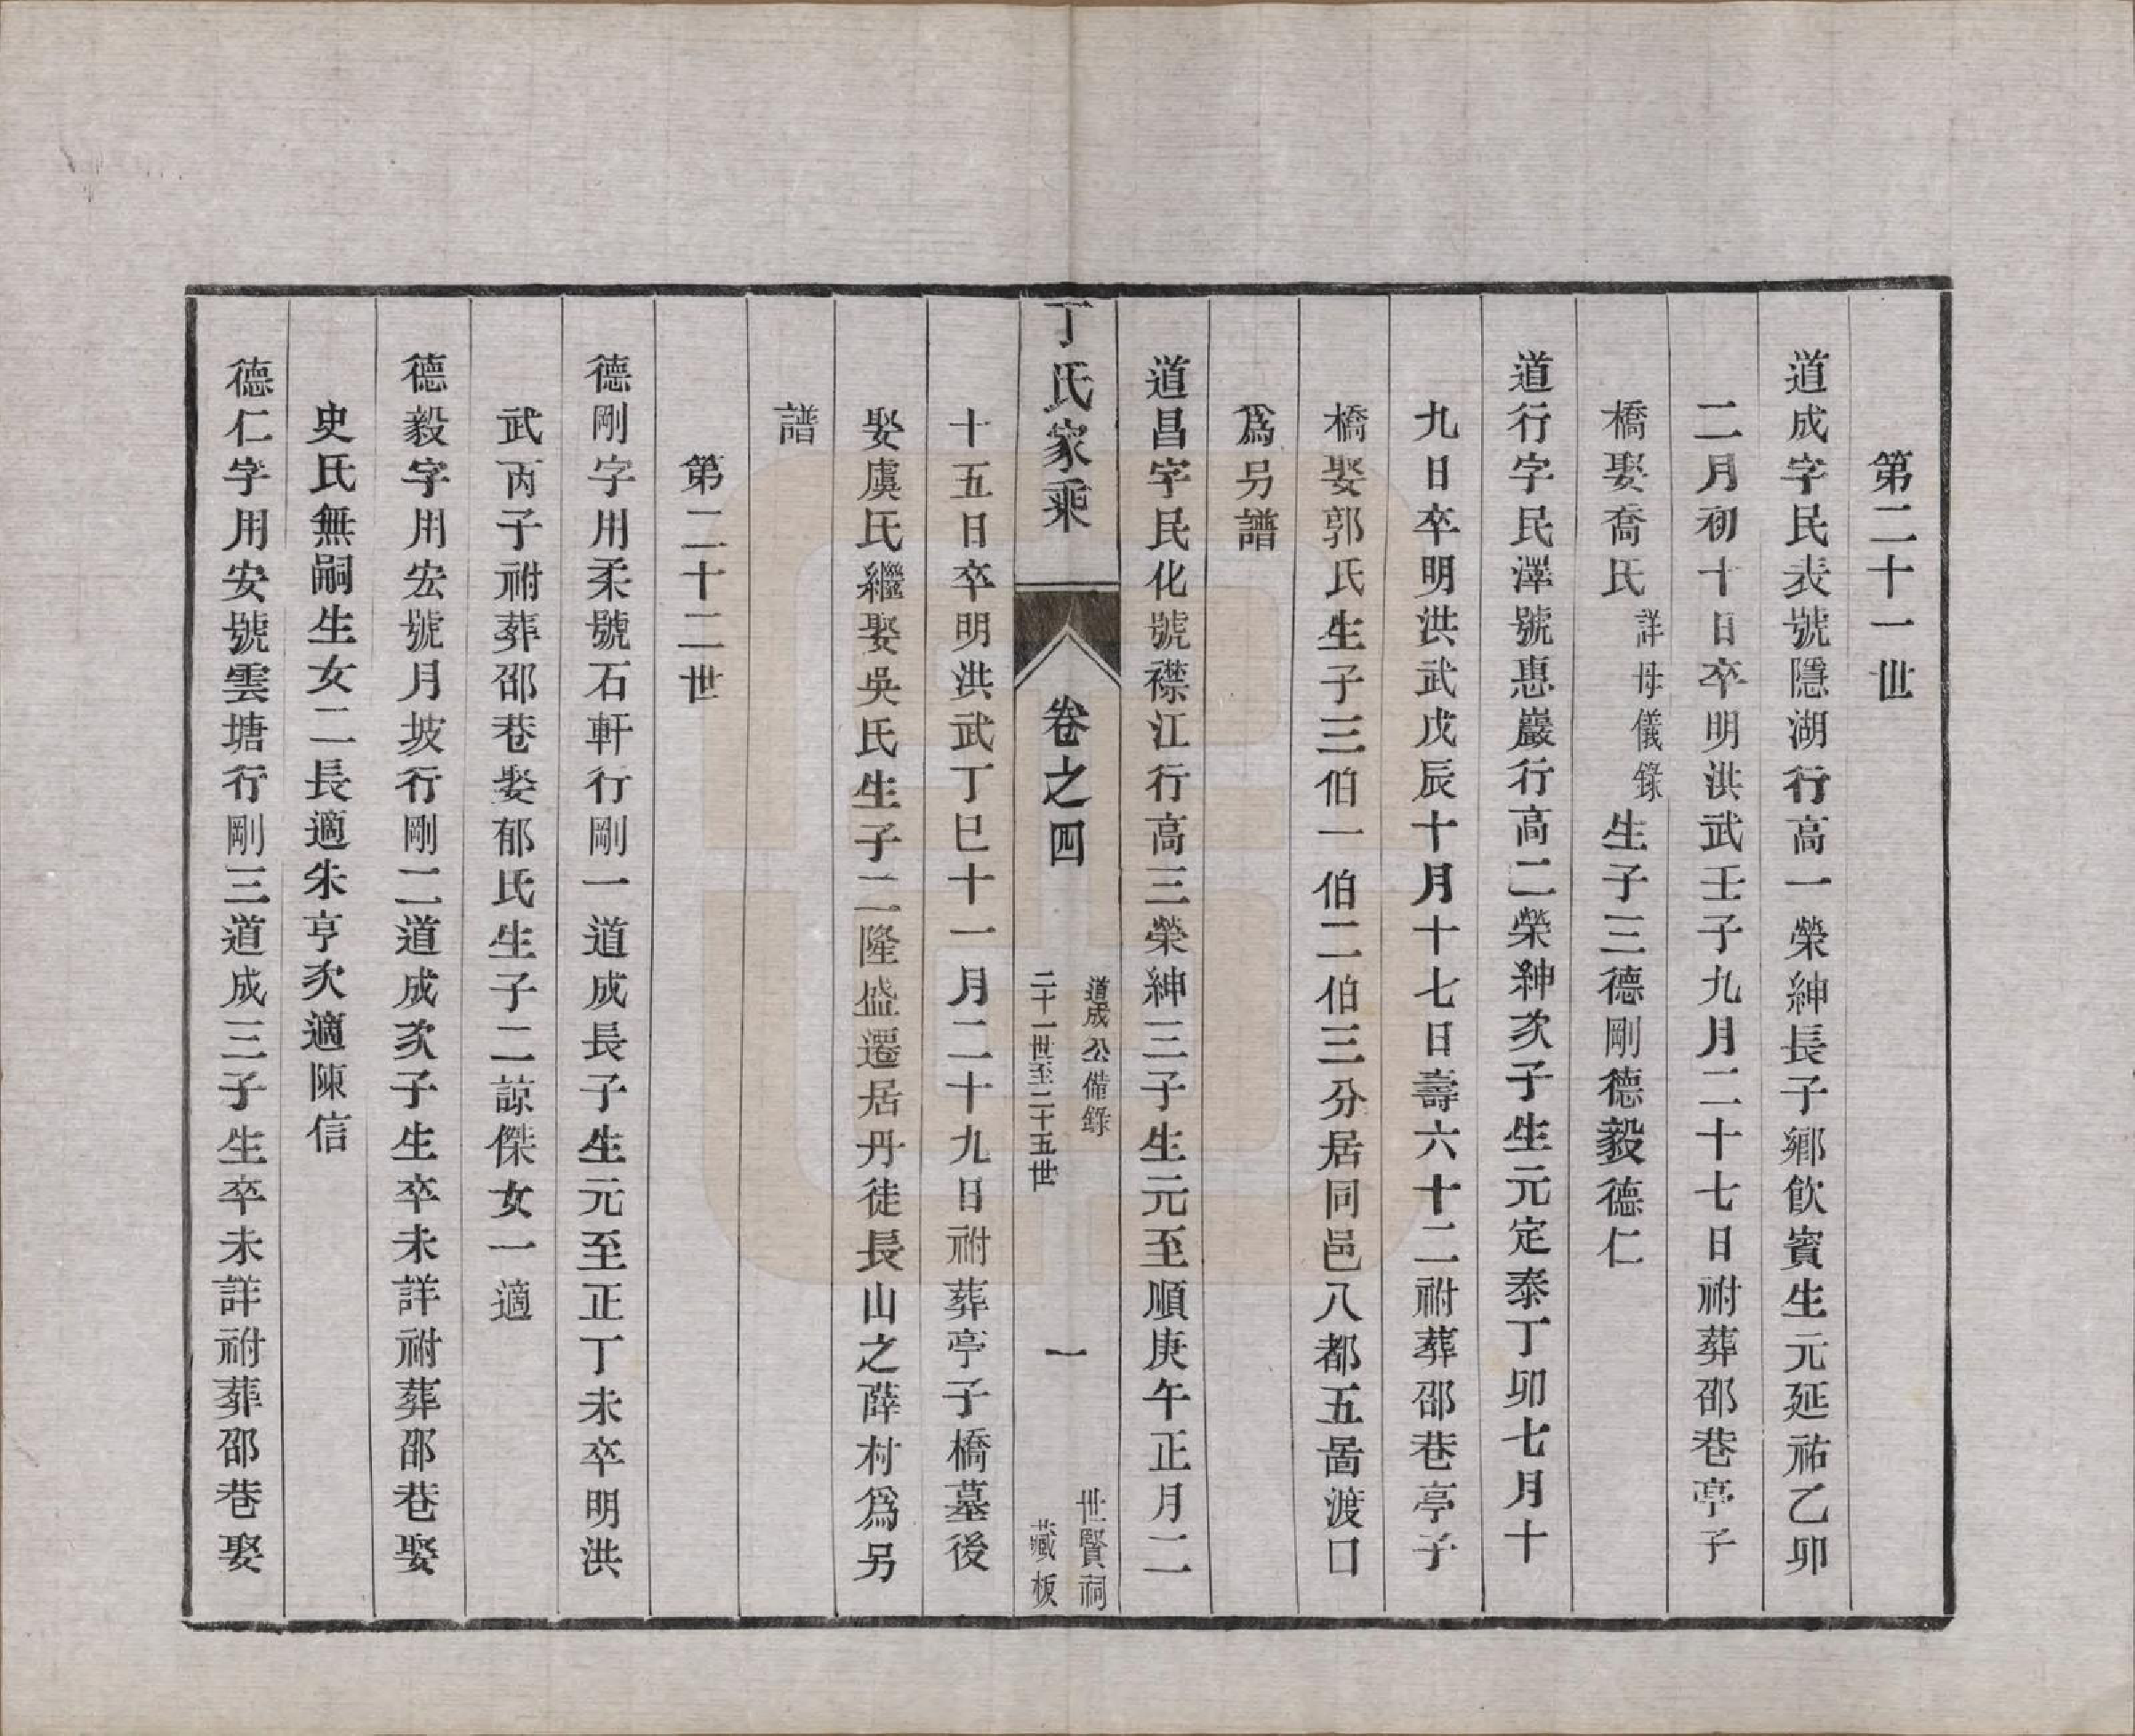 第二十一世
道成字民表號隱湖行高一榮紳長子鄉飲賓生元延祐乙卯
二月初十日卒明洪武壬子九月二十七日祔葬邵巷亭子
橋娶喬氏詳母儀錄生子三德剛德毅德仁
道行字民澤號惠巖行高二榮紳次子生元定泰丁卯七月十
九日卒明洪武戊辰十月十七日壽六十二祔葬邵巷亭子
橋娶郭氏生子三伯一伯二伯三分居同邑八都五啚渡口
爲另譜
道昌字民化號襟江行高三榮紳三子生元至順庚午正月二
丁氏家乘
卷之四
道成公備錄
二十一世至二十五世
一
世賢祠
藏板
十五日卒明洪武丁巳十一月二十九日祔葬亭子橋墓後
娶虞氏繼娶吳氏生子二隆盛遷居丹徒長山之薛村爲另
譜
第二十二世
德剛字用柔號石軒行剛一道成長子生元至正丁未卒明洪
武丙子祔葬邵巷娶郁氏生子二諒傑女一適
德毅字用宏號月坡行剛二道成次子生卒未詳祔葬邵巷娶
史氏無嗣生女二長適朱亨次適陳信
德仁字用安號雲塘行剛三道成三子生卒未詳祔葬邵巷娶